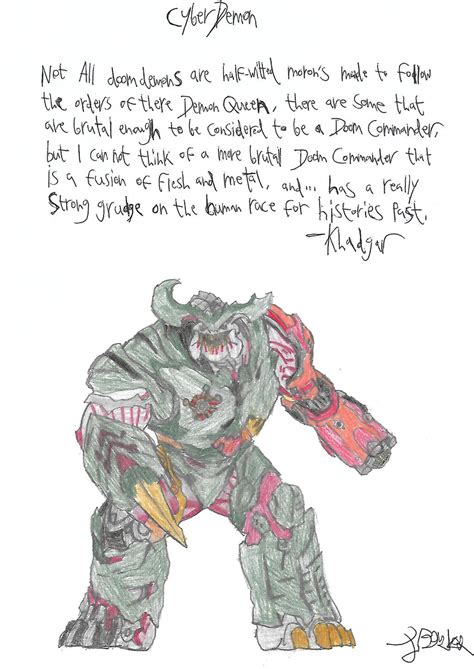 CyberDemon
Not All doomdemons are half-witted moron's made to follow
the orders of there Demon Queen, there are some that
are brutal enough to be considered to be a Doom Commander,
but I can not think of a more brutal Doom Commander that
is a fusion of flesh and metal, and... has a really
strong grudge on the human race for histories past.
-Khadgar